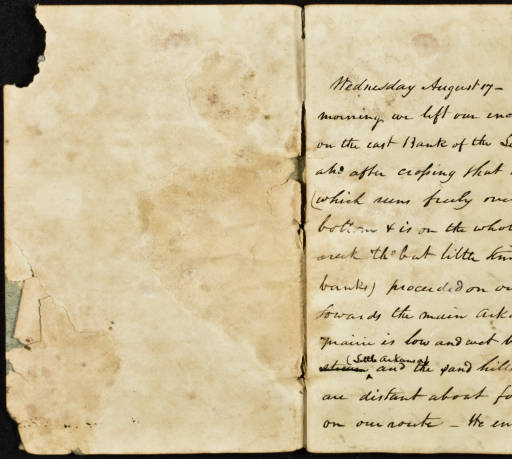 Wednesday August 17 -
morning we left our enc
on the east Bank of the
and after crossing that
(which runs freely over
bottom & is on the whol
creek tho but little tim
banks) proceeded on ou
towards the main Arka
prairie is low and wet b
(Little Arkansa)
stream and the sand hill
are distant about fo
on our route - We en